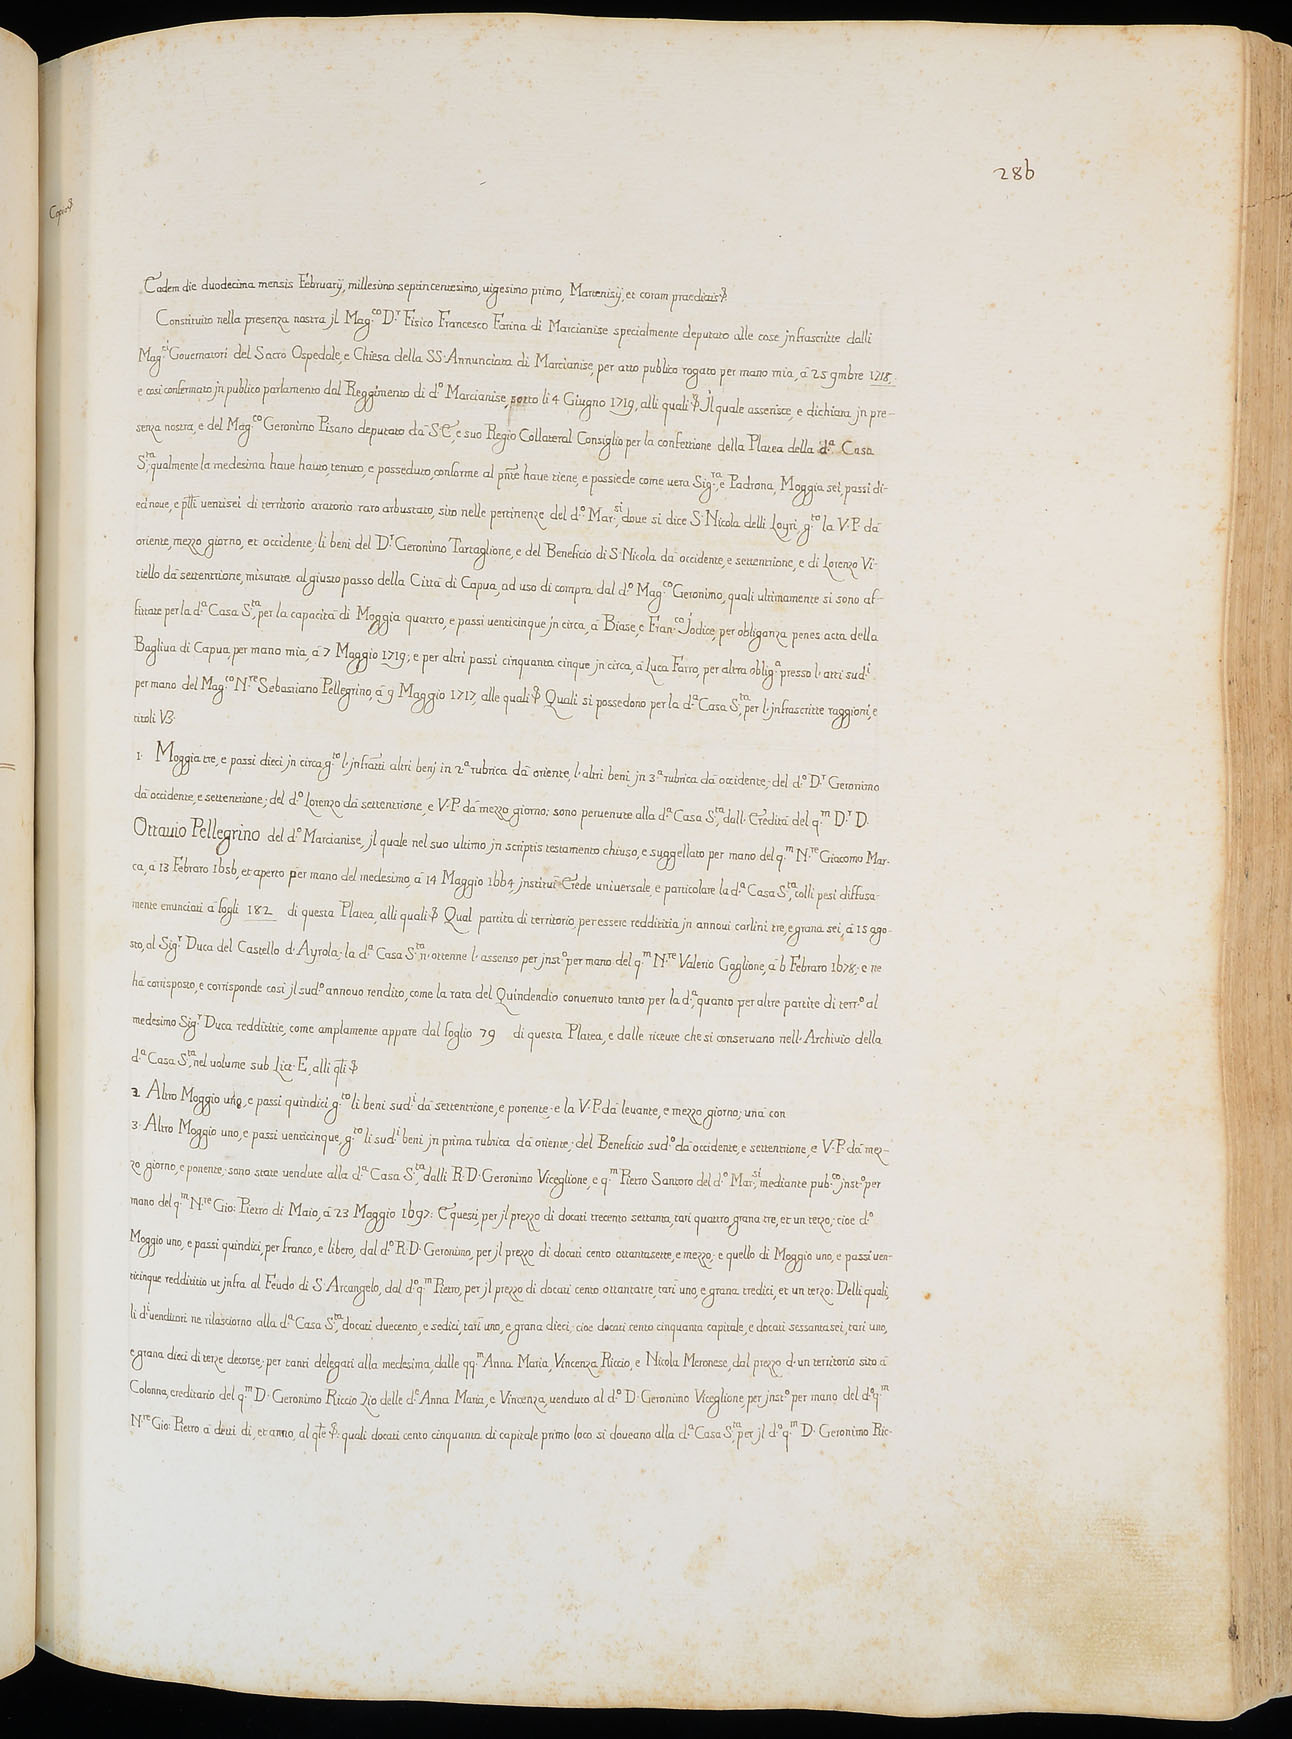 286
Copia &
Eadem die duodecima mensis Februarij, millesimo septincentesimo, uigesimo primo, Marcenisij, et coram praedictis &
Constituito nella presenza nostra jl Mag.co D.r Fisico Francesco Farina di Marcianise specialmente deputato alle cose jnfrascritte dalli
Mag.ci Gouernatori del Sacro Ospedale, e Chiesa della SS. Annunciata di Marcianise, per atto publico rogato per mano mia, à 25 9mbre 1718,
e così confermato jn publico parlamento dal Reggimento di d.o Marcianise, sotto li 4 Giugno 1719, alli quali & Jl quale asserisce, e dichiara jn pre-
senza nostra, e del Mag.co Geronimo Pisano deputato dà S.E., e suo Regio Collateral Consiglio per la confettione della Platea della d.a Casa
S.ta, qualmente la medesima haue hauto, tenuto, e posseduto, conforme al pnte haue tiene, e possiede come uera Sig.ra, e Padrona, Moggia sei, passi di-
ecinoue, e p̄tti uentisei di territorio aratorio raro arbustato, sito nelle pertinenze del d.o Mar.si, doue si dice S. Nicola delli Loyri, g.to la V.P. dà
oriente, mezzo giorno, et occidente; li beni del D.r Geronimo Tartaglione, e del Beneficio di S. Nicola dà occidente, e settentrione, e di Lorenzo Vi-
tiello dà settentrione, misurate al giusto passo della Città di Capua, ad uso di compra, dal d.o Mag.co Geronimo, quali ultimamente si sono af-
fittate per la d.a Casa S.ta, per la capacità di Moggia quattro, e passi uenticinque jn circa, à Biase, e Fran.co Jodice, per obliganza penes acta della
Bagliua di Capua, per mano mia, à 7 Maggio 1719; e per altri passi cinquanta cinque jn circa, à Luca Farro, per altra oblig.a presso l'atti sud.i
per mano del Mag.co N.re Sebastiano Pellegrino, à 9 Maggio 1717, alle quali & Quali si possedono per la d.a Casa S.ta, per l'jnfrascritte raggioni, e
titoli V3.
1. Moggia tre, e passi dieci jn circa, g.to l'jnfratti altri benj in 2.a rubrica dà oriente, l'altri beni jn 3.a rubrica dà occidente; del d.o D.r Geronimo
dà occidente, e settentrione; del d.o Lorenzo dà settentrione, e V.P. dà mezzo giorno: sono peruenute alla d.a Casa S.ta, dall'Eredità del q.m D.r D.
Ottauio Pellegrino del d.o Marcianise, jl quale nel suo ultimo jn scriptis testamento chiuso, e suggellato per mano del q.m N.re Giacomo Mar-
ca, à 13 Febraro 1656, et aperto per mano del medesimo, à 14 Maggio 1664, jnstituì Erede uniuersale, e particolare la d.a Casa S.ta, colli pesi diffusa-
mente enunciati à fogli 182 di questa Platea, alli quali & Qual partita di territorio, per essere reddititia jn annoui carlini tre, e grana sei, à 15 ago-
sto, al Sig.r Duca del Castello d'Ayrola; la d.a Casa S.ta n'ottenne l'assenso per jnst.o per mano del q.m N.re Valerio Gaglione, à 6 Febraro 1678; e ne
hà corrisposto, e corrisponde così jl sud.o annouo rendito, come la rata del Quindendio conuenuto tanto per la d.a, quanto per altre partite di terr.o al
medesimo Sig.r Duca reddititie, come amplamente appare dal foglio 79 di questa Platea, e dalle riceute che si conseruano nell'Archiuio della
d.a Casa S.ta, nel uolume sub Lict. E, alli q̄li &
2. Altro Moggio uno, e passi quindici, g.to li beni sud.i dà settentrione, e ponente; e la V.P. dà leuante, e mezzo giorno; unà con
3. Altro Moggio uno, e passi uenticinque, g.to li sud.i beni jn prima rubrica dà oriente; del Beneficio sud.o dà occidente, e settentrione, e V.P. dà mez-
zo giorno, e ponente; sono state uendute alla d.a Casa S.ta, dalli R.D. Geronimo Viceglione, e q.m Pietro Santoro del d.o Mar.si, mediante pub.co jnst.o per
mano del q.m N.re Gio: Pietro di Maio, à 23 Maggio 1697: E questi, per jl prezzo di docati trecento settanta, tarì quattro, grana tre, et un terzo; cioe d.o
Moggio uno, e passi quindici, per franco, e libero, dal d.o R.D. Geronimo, per jl prezzo di docati cento ottantasette, e mezzo; e quello di Moggio uno, e passi uen-
ticinque reddititio ut jnfra al Feudo di S. Arcangelo, dal d.o q.m Pietro, per jl prezzo di docati cento ottantatre, tarì uno, e grana tredici, et un terzo: Delli quali,
li d.i uenditori ne rilasciorno alla d.a Casa S.ta, docati duecento, e sedici, tarì uno, e grana dieci; cioe docati cento cinquanta capitale, e docati sessantasei, tarì uno,
e grana dieci di terze decorse; per tanti delegati alla medesima, dalle qq.m Anna Maria, Vincenza Riccio, e Nicola Meronese, dal prezzo d'un territorio sito à
Colonna, ereditario del q.m D. Geronimo Riccio Zio delle d.e Anna Maria, e Vincenza, uenduto al d.o D. Geronimo Viceglione, per jnst.o per mano del d.o q.m
N.re Gio: Pietro à detti dì, et anno, al q̄le &: quali docati cento cinquanta di capitale primo loco si doueano alla d.a Casa S.ta, per jl d.o q.m D. Geronimo Ric-